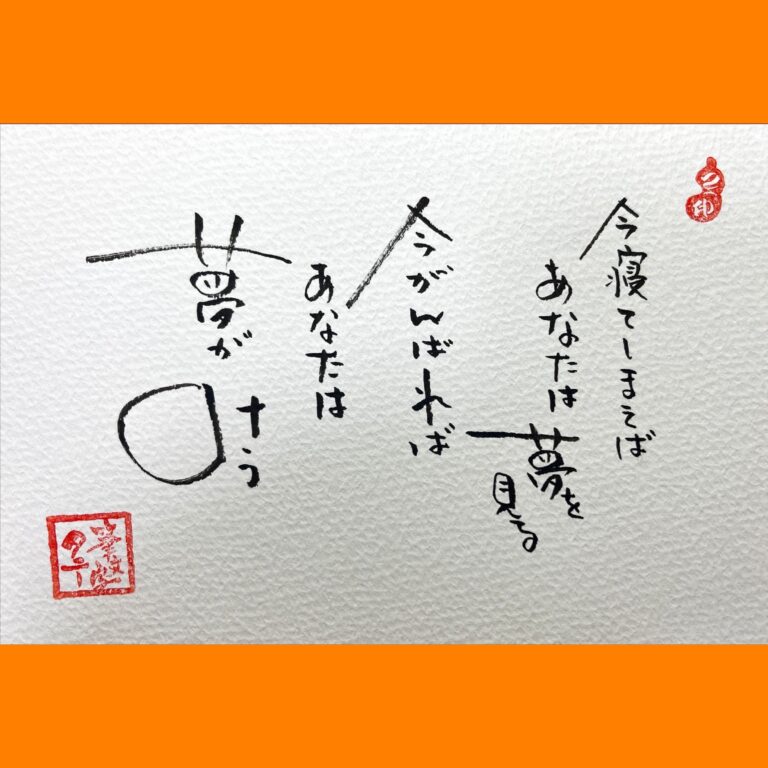 今寝てしまえば
あなたは
夢を
見る
今がんばれば
あなたは
夢が
叶う